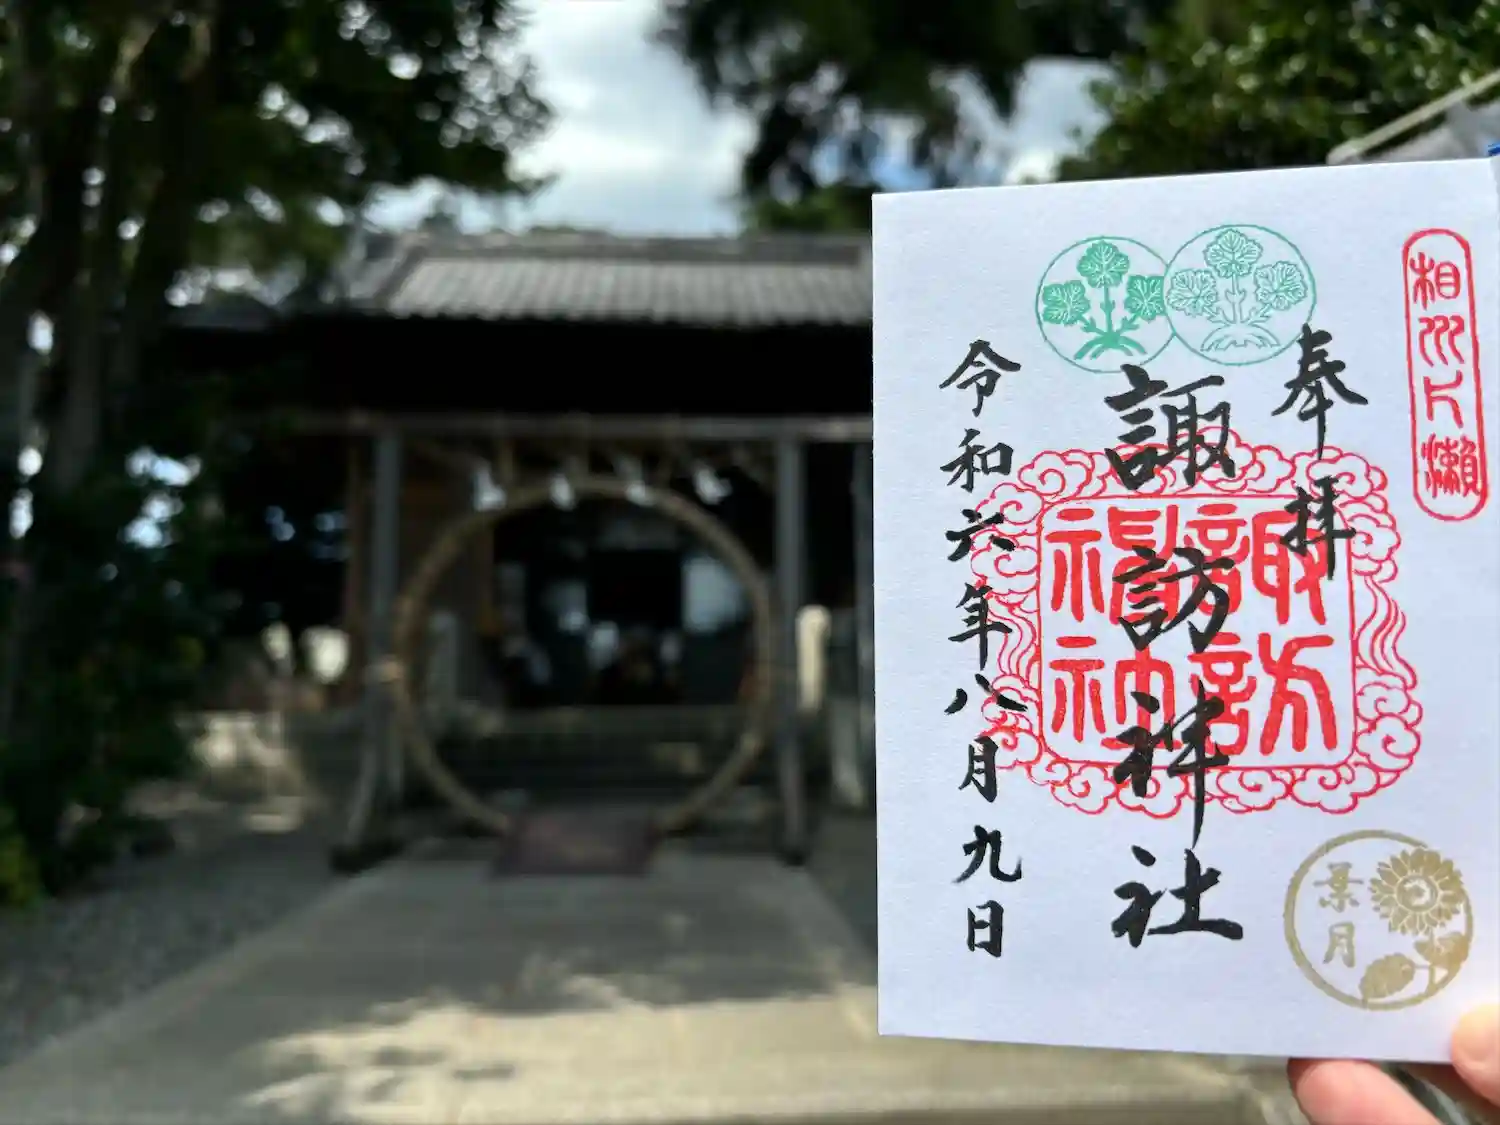 相州片瀬
奉拝
諏訪神社
諏訪神社
令和六年八月九日
葉月